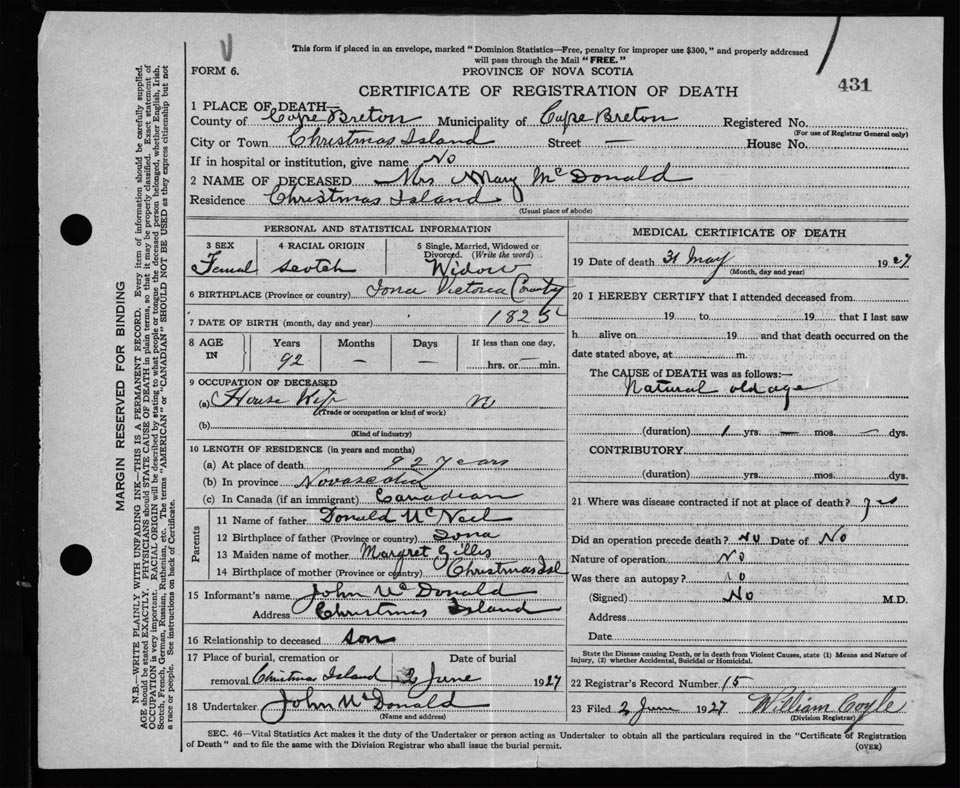 This form if placed in an envelope, marked "Dominion Statistics—Free, penalty for improper use $300," and properly addressed
will pass through the Mail "FREE."
FORM 6.
PROVINCE OF NOVA SCOTIA
431
CERTIFICATE OF REGISTRATION OF DEATH
1 PLACE OF DEATH—
County of Cape Breton Municipality of Cape Breton Registered No.
(For use of Registrar General only)
City or Town Christmas Island Street — House No.
If in hospital or institution, give name No
2 NAME OF DECEASED Mrs Mary McDonald
Residence Christmas Island
(Usual place of abode)
PERSONAL AND STATISTICAL INFORMATION
3 SEX 4 RACIAL ORIGIN 5 Single, Married, Widowed or
Divorced. (Write the word)
Femal scotch Widow
6 BIRTHPLACE (Province or country) Iona Victoria County
7 DATE OF BIRTH (month, day and year) 1825
8 AGE IN Years Months Days If less than one day,
92 — — hrs. or min.
9 OCCUPATION OF DECEASED
(a) House Wife
(Trade or occupation or kind of work)
(b)
(Kind of industry)
10 LENGTH OF RESIDENCE (in years and months)
(a) At place of death 92 years
(b) In province Novascotia
(c) In Canada (if an immigrant) Canadian
Parents
11 Name of father Donald McNeil
12 Birthplace of father (Province or country) Iona
13 Maiden name of mother Margret Gillis
14 Birthplace of mother (Province or country) Christmas Isl
15 Informant's name John McDonald
Address Christmas Island
16 Relationship to deceased son
17 Place of burial, cremation or Date of burial
removal Christmas Island 2 June 1927
18 Undertaker John McDonald
(Name and address)
MEDICAL CERTIFICATE OF DEATH
19 Date of death 31 May 1927
(Month, day and year)
20 I HEREBY CERTIFY that I attended deceased from
19 to 19 that I last saw
h alive on 19 and that death occurred on the
date stated above, at m.
The CAUSE of DEATH was as follows:—
Natural old age
(duration) 1 yrs. — mos. — dys.
CONTRIBUTORY
(duration) yrs. mos. dys.
21 Where was disease contracted if not at place of death? yes
Did an operation precede death? No Date of No
Nature of operation No
Was there an autopsy? No
(Signed) No M.D.
Address
Date
State the Disease causing Death, or in death from Violent Causes, state (1) Means and Nature of
Injury, (2) whether Accidental, Suicidal or Homicidal.
22 Registrar's Record Number 15
23 Filed 2 June 1927 William Coyle
(Division Registrar)
SEC. 46—Vital Statistics Act makes it the duty of the Undertaker or person acting as Undertaker to obtain all the particulars required in the "Certificate of Registration
of Death" and to file the same with the Division Registrar who shall issue the burial permit.
(OVER)
MARGIN RESERVED FOR BINDING
N.B.—WRITE PLAINLY WITH UNFADING INK—THIS IS A PERMANENT RECORD. Every item of information should be carefully supplied.
AGE should be stated EXACTLY. PHYSICIANS should STATE CAUSE OF DEATH in plain terms, so that it may be properly classified. Exact statement of
OCCUPATION is very important. RACIAL ORIGIN will be described by stating to what people or tongue the deceased person belonged, whether English, Irish,
Scotch, French, German, Russian, Ruthenian, etc. The terms "AMERICAN" or "CANADIAN" SHOULD NOT BE USED as they express citizenship but not
a race or people. See instructions on back of Certificate.